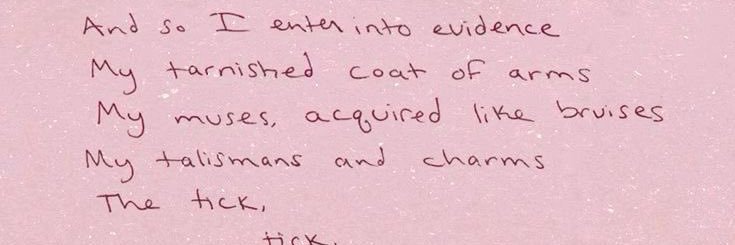 And so I enter into evidence
My tarnished coat of arms
My muses, acquired like bruises
My talismans and charms
The tick,
tick,